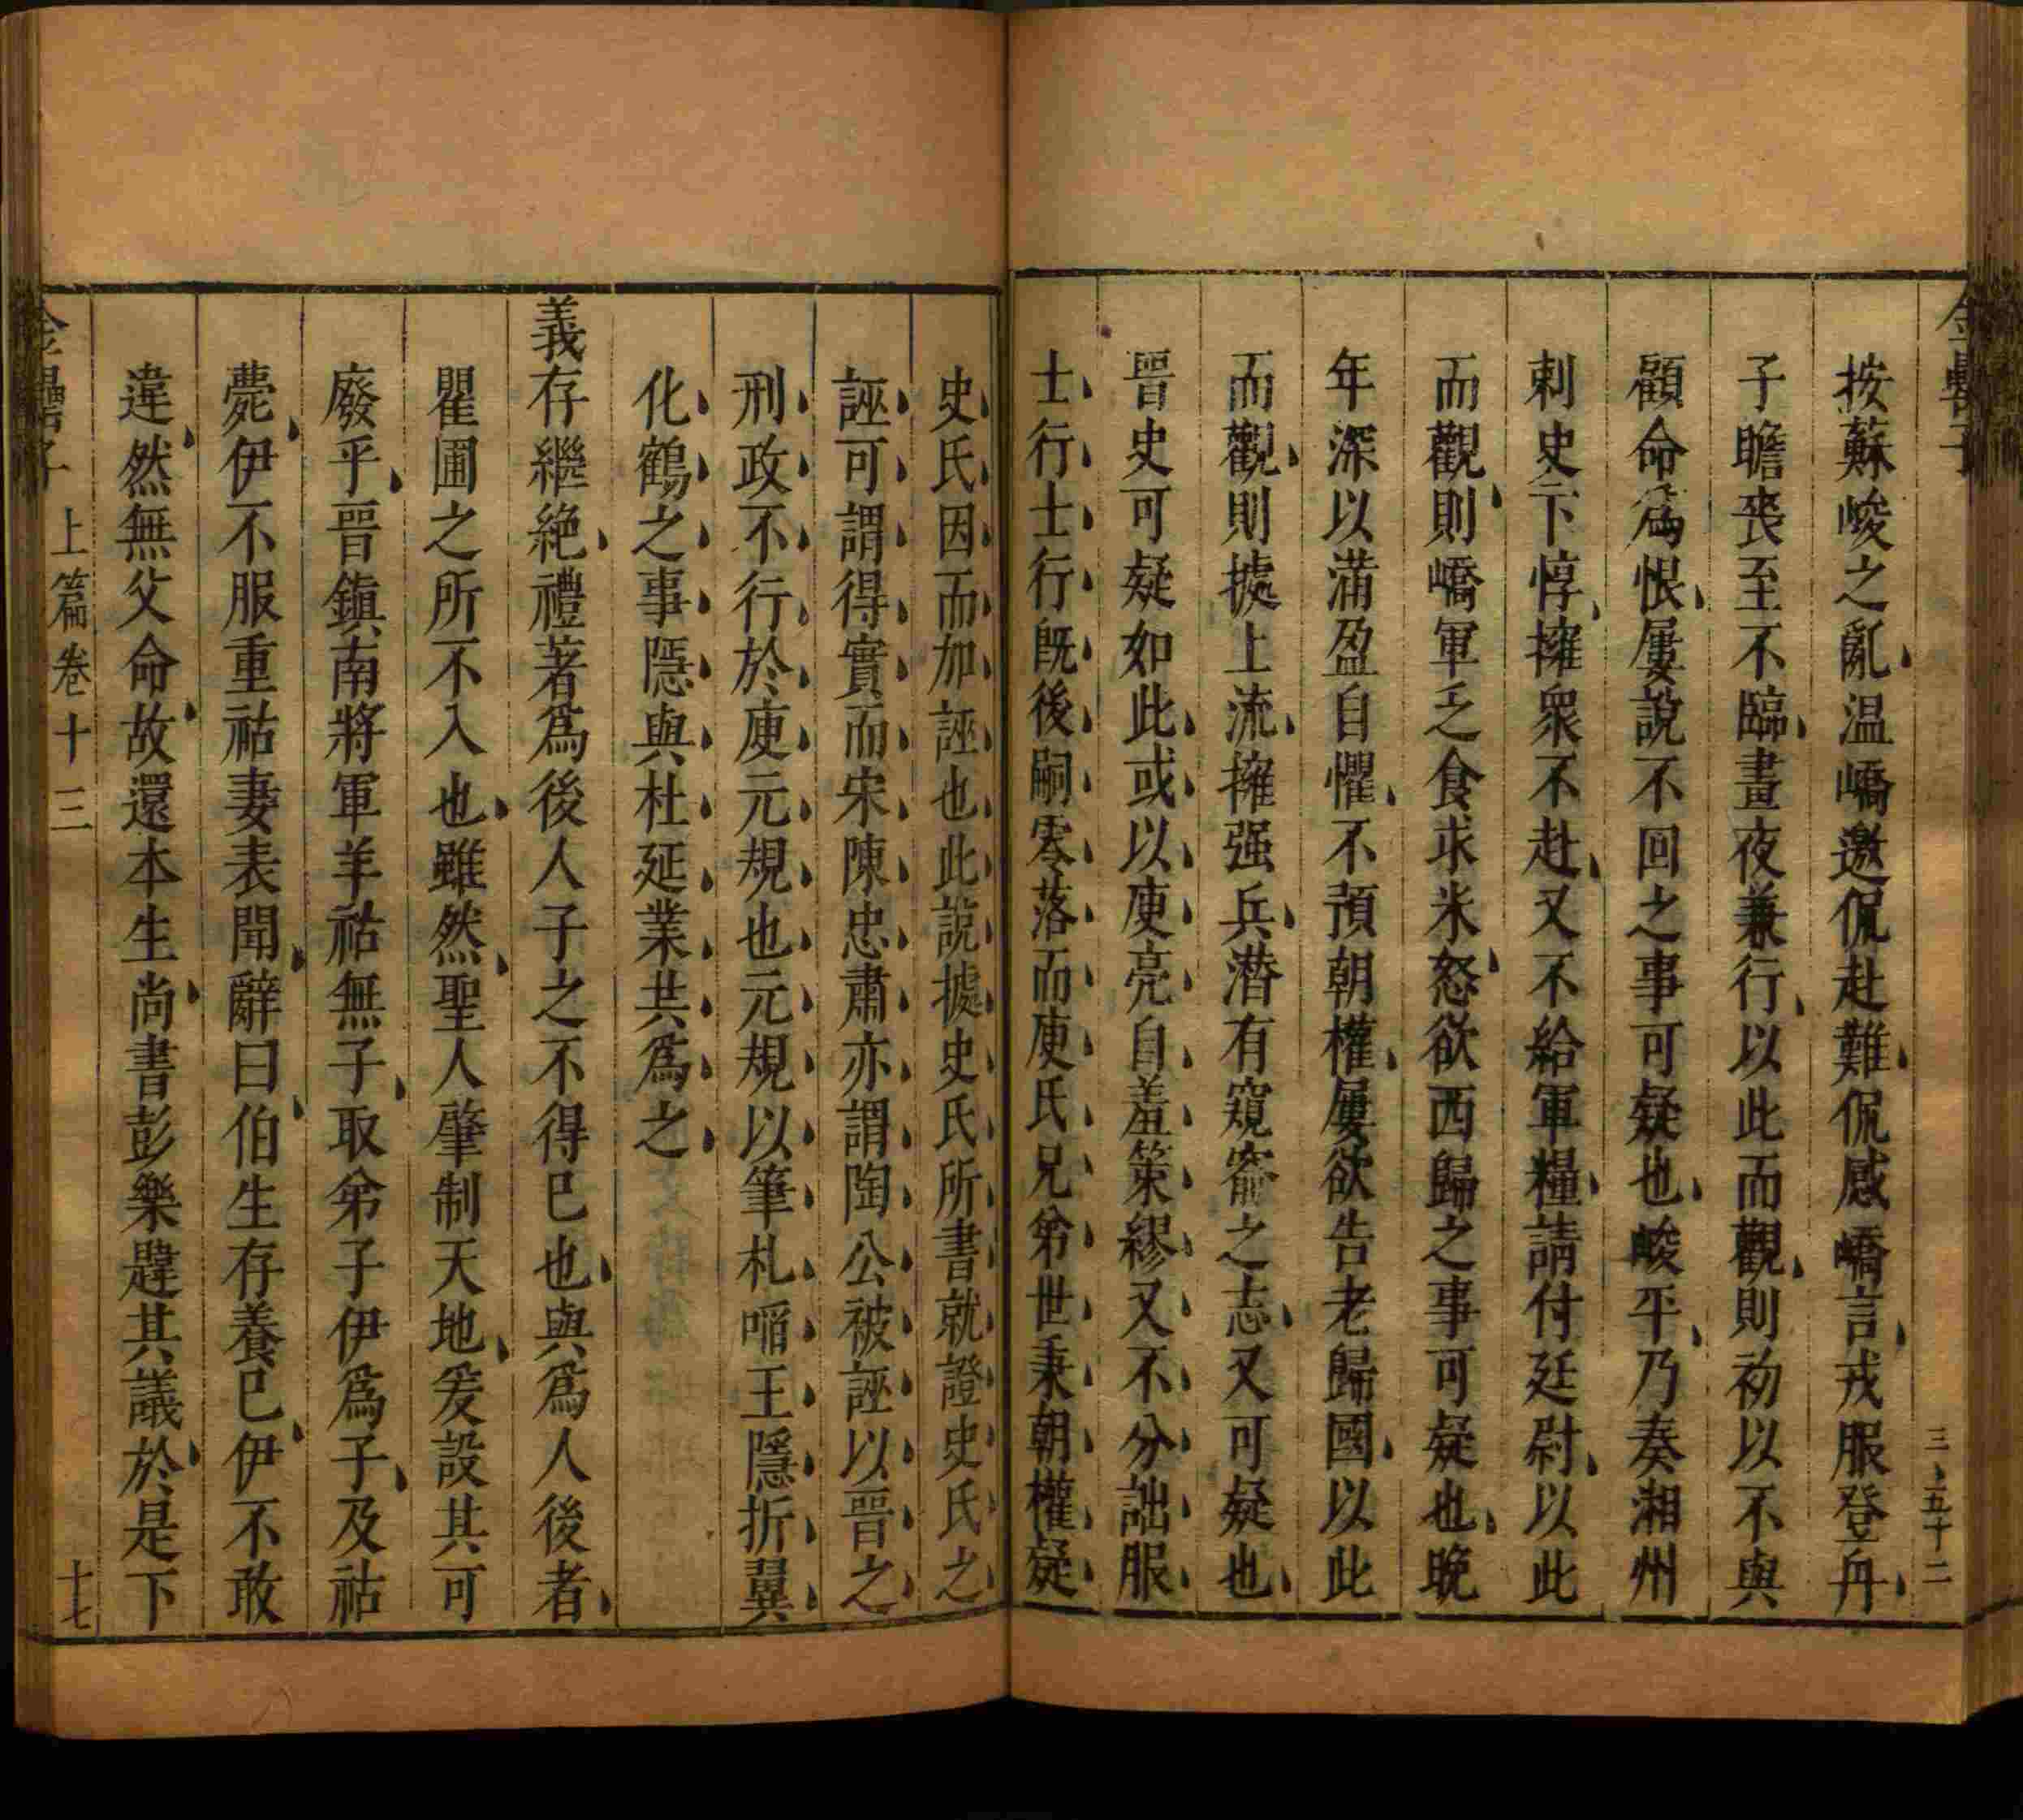 按蘇峻之亂温嶠邀侃赴難侃感嶠言戎服登舟
子瞻喪至不臨晝夜兼行以此而觀則初以不與
顧命爲恨屢說不回之事可疑也峻平乃奏湘州
刺史卞惇擁衆不赴又不給軍糧請付廷尉以此
而觀則嶠軍乏食求米怒欲西歸之事可疑也晚
年深以滿盈自懼不預朝權屢欲告老歸國以此
而觀則據上流擁强兵潛有窺窬之志又可疑也
晉史可疑如此或以庾亮自羞策繆又不分詘服
士行士行旣後嗣零落而庾氏兄弟世秉朝權疑
三五十二
史氏因而加誣也此說據史氏所書就證史氏之
誣可謂得實而宋陳忠肅亦謂陶公被誣以晉之
刑政不行於庾元規也元規以筆札啗王隱折翼
化鶴之事隱與杜延業共爲之
義存繼絶禮著爲後人子之不得已也與爲人後者
瞿圃之所不入也雖然聖人肇制天地爰設其可
廢乎晉鎭南將軍羊祜無子取弟子伊爲子及祜
薨伊不服重祜妻表聞辭曰伯生存養已伊不敢
違然無父命故還本生尚書彭樂韙其議於是下
上篇卷十三
十七